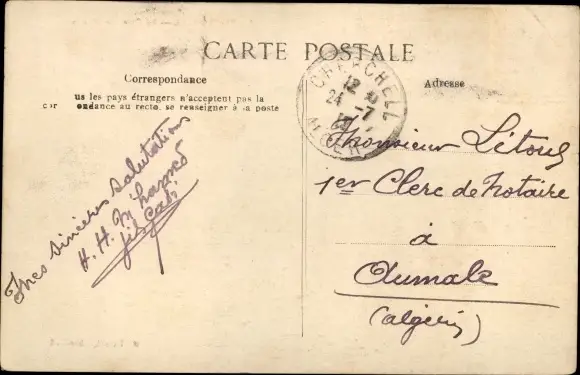 CARTE POSTALE
Correspondance
us les pays étrangers n'acceptent pas la
cor ondance au recto. se renseigner à la poste
Adresse
CHERCHELL
12
24 -7
ALGER
Mes sincères salutations
H. H. M'hamed
fils Cadi
Monsieur Létoug
1er Clerc de Notaire
à
Aumale
(Algérie)